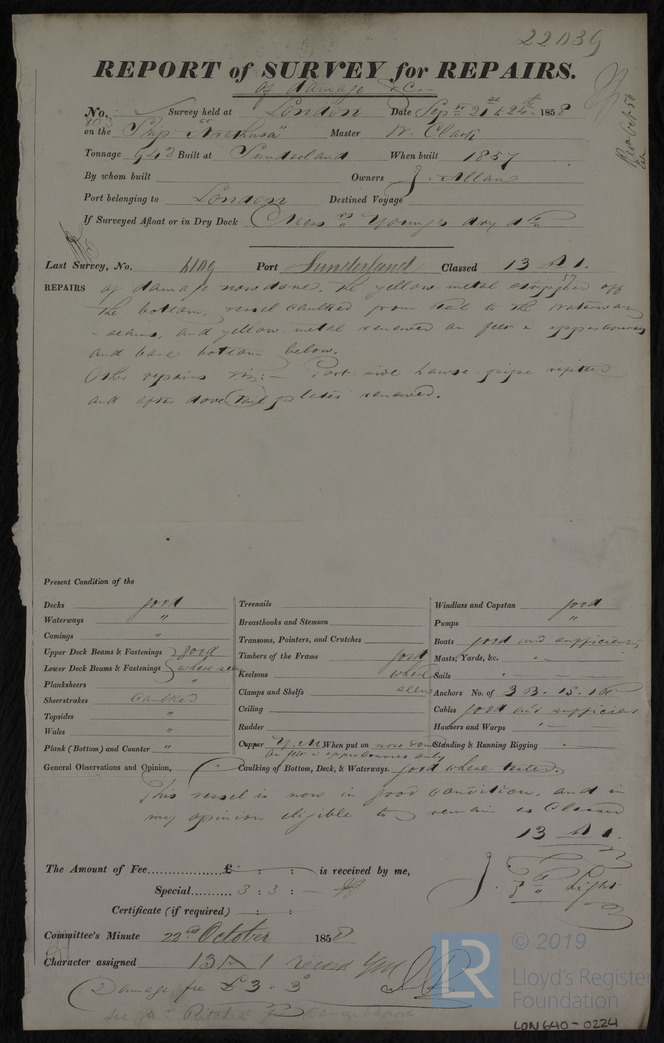 22039
REPORT of SURVEY for REPAIRS.
of damage &c
No. Survey held at London Date Sepr 21st & 24th 1858
on the Ship "Arethusa" Master W. Clark
Tonnage 943 Built at Sunderland When built 1857
By whom built Owners J. Allan
Port belonging to London Destined Voyage
If Surveyed Afloat or in Dry Dock Young's dry dk
Last Survey, No. Port Sunderland Classed 13 A 1.
57
REPAIRS of damage now done. The yellow metal stripped off
the bottom, vessel caulked from keel to the waterway
seams, and yellow metal renewed on felt in upper courses
and bare bottom below.
Other repairs viz:- Port side hawse pipe refitted
and after dove tail plates renewed.
Present Condition of the
Decks good
Waterways "
Comings "
Upper Deck Beams & Fastenings good
Lower Deck Beams & Fastenings where seen
Planksheers "
Sheerstrakes Caulked
Topsides "
Wales "
Plank (Bottom) and Counter "
Treenails
Breasthooks and Stemson
Transoms, Pointers, and Crutches
Timbers of the Frame good
Keelsons where
Clamps and Shelfs seen
Ceiling
Rudder
Copper Y.M. When put on now
on felt in upper courses only
Windlass and Capstan good
Pumps "
Boats good and sufficient
Masts, Yards, &c. "
Sails "
Anchors No. of 3 B. 1S. 1K
Cables good and sufficient
Hawsers and Warps "
Standing & Running Rigging "
General Observations and Opinion, Caulking of Bottom, Deck, & Waterways. good where tested
This vessel is now in good condition, and in
my opinion eligible to remain as Classed
13 A 1.
The Amount of Fee £ : : is received by me,
Special 3 : 3 : —
Certificate (if required) : :
J. Light
Committee's Minute 22nd October 1858
Character assigned 13 A 1
Damage fee £3 - 3
© 2019
LR
Lloyd's Register
Foundation
LON640-0224